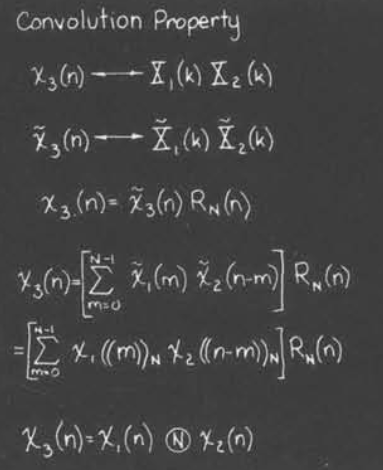 Convolution Property
x₃(n) ⟷ X₁(k) X₂(k)
x̃₃(n) ⟷ X̃₁(k) X̃₂(k)
x₃(n) = x̃₃(n) R_N(n)
x₃(n) = [∑_{m=0}^{N-1} x̃₁(m) x̃₂(n-m)] R_N(n)
= [∑_{m=0}^{N-1} x₁((m))_N x₂((n-m))_N] R_N(n)
x₃(n) = x₁(n) Ⓝ x₂(n)